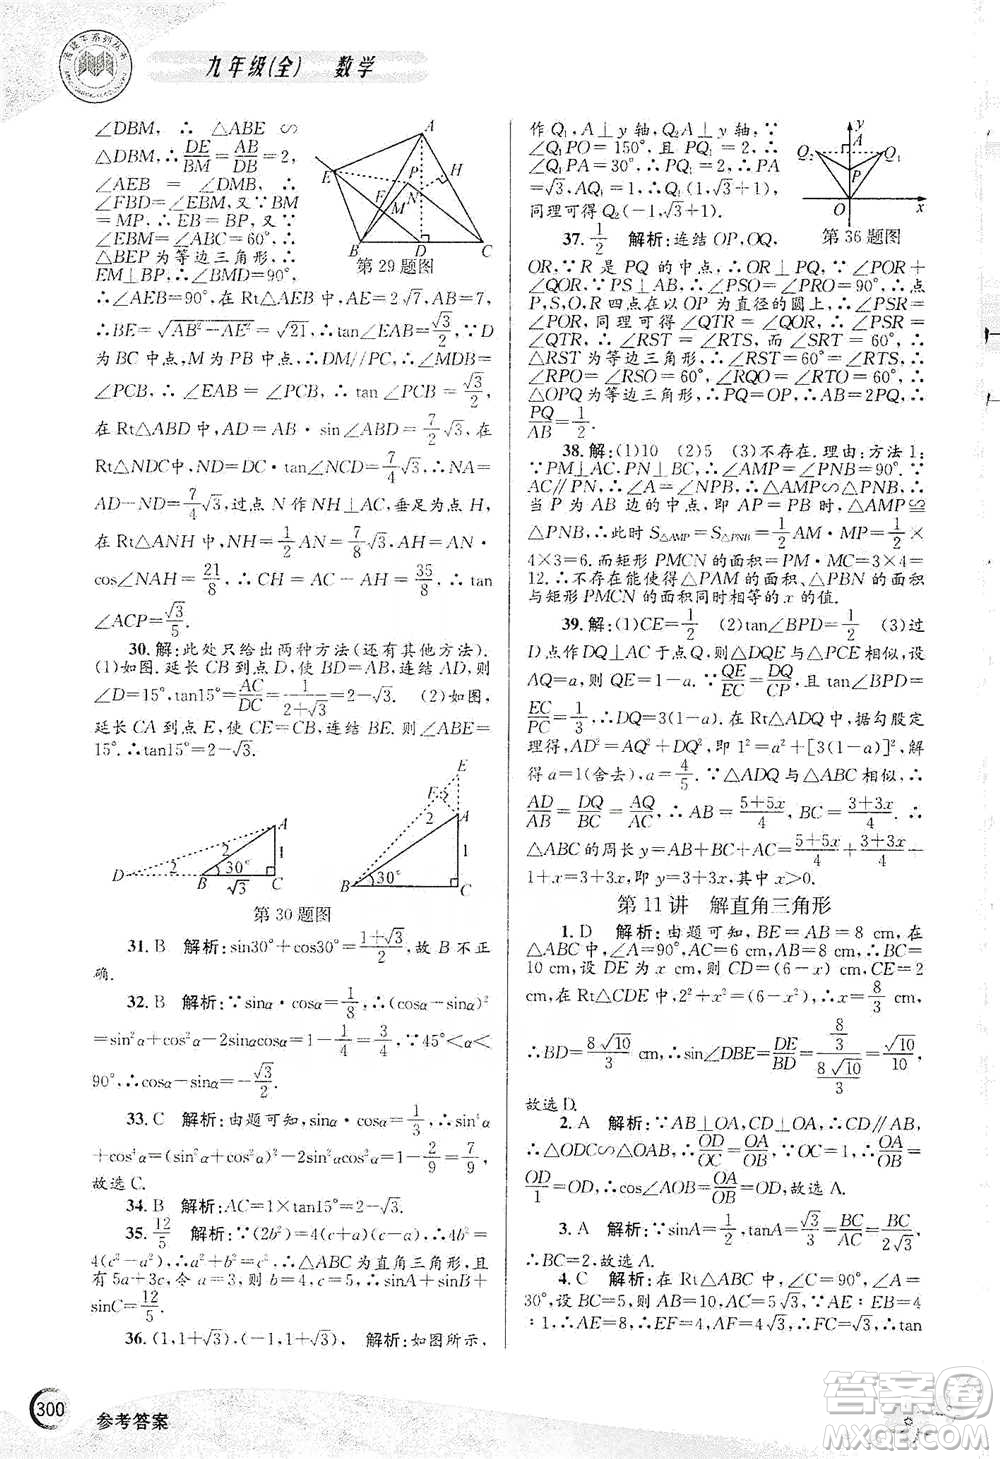 孟建平系列丛书
九年级(全) 数学
∠DBM,∴△ABE∽
△DBM,∴DE/BM=AB/DB=2,
∴∠AEB=∠DMB,∴
∠FBD=∠EBM,又∵BM
=MP,∴EB=BP,又∵
∠EBM=∠ABC=60°,∴
△BEP为等边三角形,∴
EM⊥BP,∴∠BMD=90°,
∴∠AEB=90°,在Rt△AEB中,AE=2√7,AB=7,
∴BE=√(AB²-AE²)=√21,∴tan∠EAB=√3/2,∵D
为BC中点,M为PB中点,∴DM//PC,∴∠MDB=
∠PCB,∴∠EAB=∠PCB,∴tan∠PCB=√3/2,
在Rt△ABD中,AD=AB·sin∠ABD=7/2√3,
在Rt△NDC中,ND=DC·tan∠NCD=7/4√3,∴NA=
AD-ND=7/4√3,过点N作NH⊥AC,垂足为点H,
在Rt△ANH中,NH=1/2AN=7/8√3,AH=AN·
cos∠NAH=21/8,∴CH=AC-AH=35/8,∴tan
∠ACP=√3/5.
30.解:此处只给出两种方法(还有其他方法).
(1)如图.延长CB到点D,使BD=AB,连结AD,则
∠D=15°,tan15°=AC/DC=1/(2+√3)=2-√3. (2)如图,
延长CA到点E,使CE=CB,连结BE.则∠ABE=
15°.∴tan15°=2-√3.
第29题图
A E P H N F M B D C
E F 5 A 2 1 B 30° C
D 2 2 A 1 B 30° √3 C
第30题图
31.B 解析:sin30°+cos30°=(1+√3)/2,故B不正
确.
32.B 解析:∵sinα·cosα=1/8,∴(cosα-sinα)²
=sin²α+cos²α-2sinαcosα=1-1/4=3/4,∵45°<α<
90°,∴cosα-sinα=-√3/2.
33.C 解析:由题可知,sinα·cosα=1/3,∴sin⁴α
+cos⁴α=(sin²α+cos²α)²-2sin²αcos²α=1-2/9=7/9,
故选C.
34.B 解析:AC=1×tan15°=2-√3.
35.12/5 解析:∵(2b)²=4(c+a)(c-a),∴4b²=
4(c²-a²),∴a²+b²=c²,∴△ABC为直角三角形,又
有5a+3c,令a=3,则b=4,c=5,∴sinA+sinB+
sinC=12/5.
36.(1,1+√3),(-1,1+√3) 解析:如图所示,
作Q₁A⊥y轴,Q₂A⊥y轴,∵
∠Q₁PO=150°,且PQ₁=2,∴
∠Q₁PA=30°,∴Q₁A=1,PA
=√3,AQ₁=1,Q₁(1,1+√3),
同理可得Q₂(-1,√3+1).
y A Q₂ Q₁ P O x
第36题图
37.1/2 解析:连结OP,OQ,
OR,∵R是PQ的中点,∴OR⊥PQ.∴∠OPR+
∠QOR=90°,∵PS⊥AB,∴∠PSO=∠PRO=90°,∴点
P,S,O,R四点在以OP为直径的圆上,∴∠PSR=
∠POR,同理可得∠QTR=∠QOR,∴∠PSR+∠QTR
=90°,∴∠RST=∠RTS,而∠SRT=60°,∴
△RST为等边三角形,∴∠RST=60°=∠RTS,∴
∠RPO=∠RSO=60°,∠RQO=∠RTO=60°,∴
△OPQ为等边三角形,∴PQ=OP,∴AB=2PQ,∴
PQ/AB=1/2.
38.解:(1)10 (2)5 (3)不存在.理由:方法1:
∵PM⊥AC,PN⊥BC,∴∠AMP=∠PNB=90°.∵
AC//PN,∴∠A=∠NPB,∴△AMP∽△PNB,∴
当P为AB边的中点,即AP=PB时,△AMP≌
△PNB,∴此时S△AMP=S△PNB=1/2AM·MP=1/2×
4×3=6.而矩形PMCN的面积=PM·MC=3×4=
12.∴不存在能使得△PAM的面积、△PBN的面积
与矩形PMCN的面积同时相等的x的值.
39.解:(1)CE=1/2 (2)tan∠BPD=1/2 (3)过
D点作DQ⊥AC于点Q,则△DQE与△PCE相似,设
AQ=a,则QE=1-a.∴QE/EC=DQ/CP,∵tan∠BPD=
EC/PC=1/3,∴DQ=3(1-a).在Rt△ADQ中,据勾股定
理得,AD²=AQ²+DQ²,即1²=a²+[3(1-a)]²,解
得a=1(舍去),a=4/5.∵△ADQ与△ABC相似,∴
AD/AB=DQ/BC=AQ/AC,∴AB=(5+5x)/4,BC=(3+3x)/4.∴
△ABC的周长y=AB+BC+AC=(5+5x)/4+(3+3x)/4+
1+x=3+3x,其中x>0.
第11讲 解直角三角形
1.D 解析:由题可知,BE=AB=8 cm,在
△ABC中,∠A=90°,AC=6 cm,AB=8 cm,∴BC=
10 cm,设DE为x cm,则CD=(6-x)cm,CE=2
cm,在Rt△CDE中,2²+x²=(6-x)²,∴x=8/3 cm,
∴BD=8√10/3 cm,∴sin∠DBE=DE/BD=(8/3)/(8√10/3)=√10/10,
故选D.
2.A 解析:∵AB⊥OA,CD⊥OA,∴CD//AB,
∴△ODC∽△OAB,∴OD/OC=OA/OB,∴cos∠AOB=OA/OB=
OD/1=OD,∴cos∠AOB=OA/OB=OD.故选A.
3.A 解析:∵sinA=1/2,tanA=√3/3=BC/AC=BC/2√3,
∴BC=2,故选A.
4.C 解析:在Rt△ABC中,∠C=90°,∠A=
30°,设BC=5,则AB=10,AC=5√3,∵AE:EB=4
:1,∴AE=8,∴EF=4,AF=4√3,∴FC=√3,∴tan
300
参考答案
答案圈